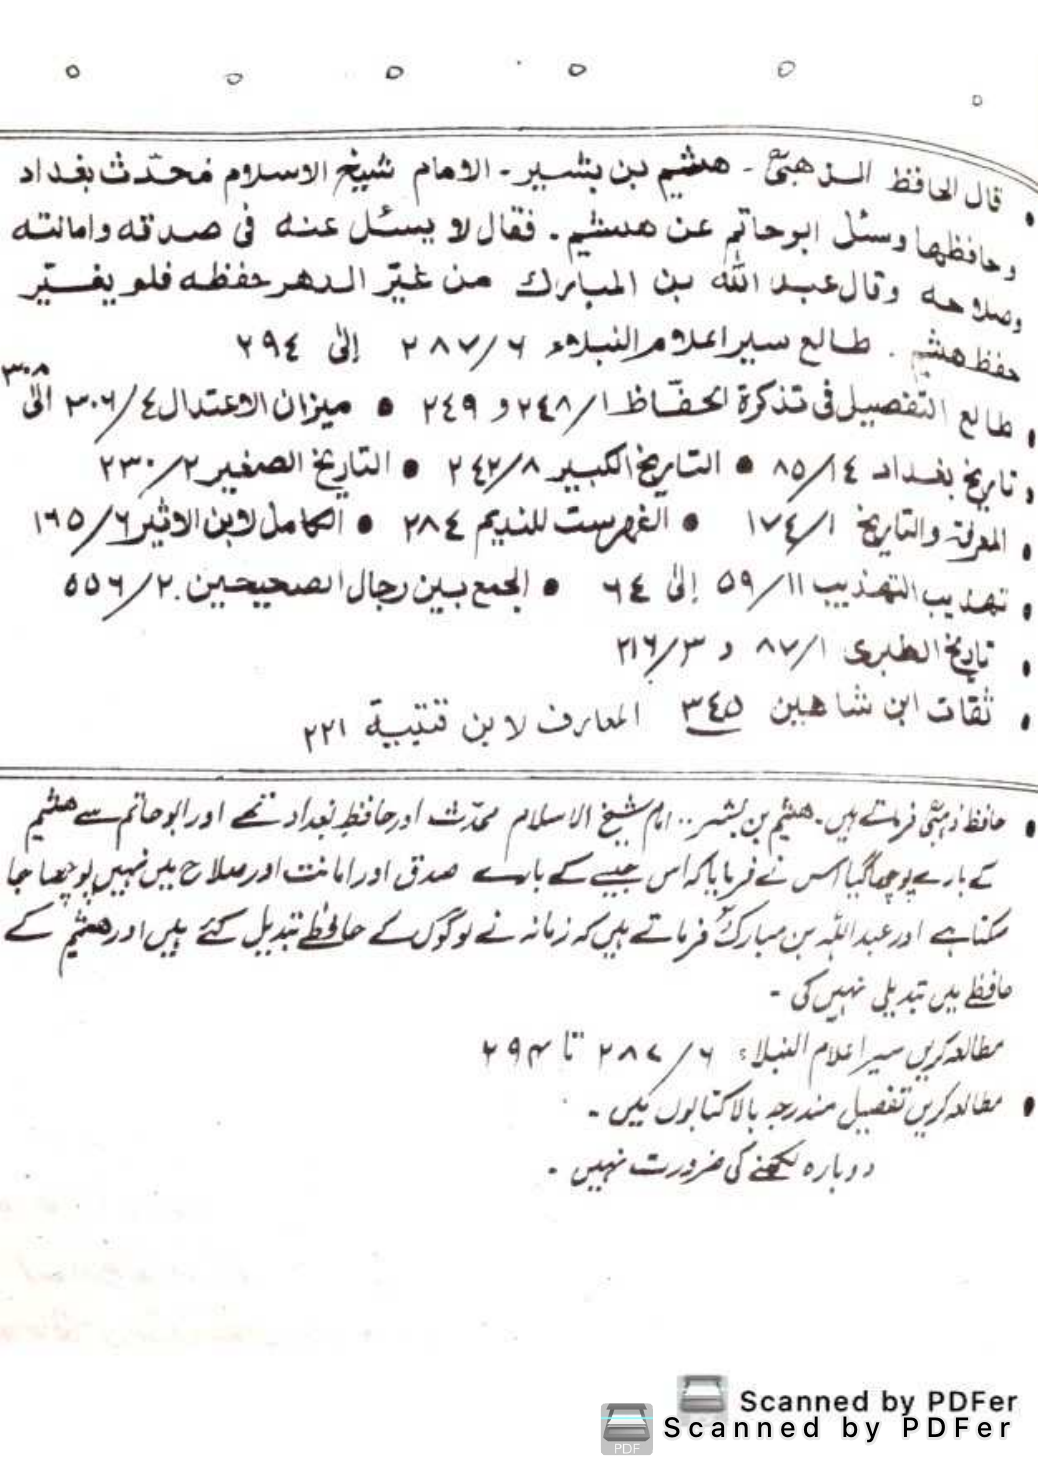 قال الحافظ الذهبیؒ ۔ هشیم بن بشیر ۔ الامام شیخ الاسلام محدّث بغداد
وحافظها وسئل ابوحاتم عن هشیم . فقال لا یسئل عنه فی صدقه وامانته
وصلاحه وقال عبد الله بن المبارك من غیّر الدهر حفظه فلو یغیّر
حفظ هشیم . طالع سیر اعلام النبلاء ٦/٢٨٧ الیٰ ٢٩٤
• طالع التفصیل فی تذکرة الحفّاظ ١/٢٤٨ و ٢٤٩ • میزان الاعتدال ٤/٣٠٦ الیٰ ٣٠٨
• تاریخ بغداد ١٤/٨٥ • التاریخ الکبیر ٨/٢٤٢ • التاریخ الصغیر ٢/٢٣٠
• المعرفة والتاریخ ١/١٧٤ • الفهرست للندیم ٢٨٤ • الکامل لابن الاثیر ٦/١٦٥
• تهذیب التهذیب ١١/٥٩ الیٰ ٦٤ • الجمع بین رجال الصحیحین ٢/٥٥٦
• تاریخ الطبری ١/٨٧ و ٣/٢١٦
• ثقات ابن شاهین ٣٤٥ المعارف لابن قتیبة ٢٢١
• حافظ ذہبیؒ فرماتے ہیں۔ ھشیم بن بشیر .. امام شیخ الاسلام محدّث اور حافظِ بغداد تھے اور ابوحاتم سے ھشیم
کے بارے پوچھا گیا اس نے فرمایا کہ اس جیسے کے بارے صدق اور امانت اور صلاح میں نہیں پوچھا جا
سکتا ہے اور عبداللہ بن مبارکؒ فرماتے ہیں کہ زمانہ نے لوگوں کے حافظے تبدیل کئے ہیں اور ھشیم کے
حافظے میں تبدیلی نہیں کی ۔
مطالعہ کریں سیر اعلام النبلاء ۶/۲۸۷ تا ۲۹۴
• مطالعہ کریں تفصیل مندرجہ بالا کتابوں میں ۔
دوبارہ لکھنے کی ضرورت نہیں ۔
Scanned by PDFer
Scanned by PDFer
PDF